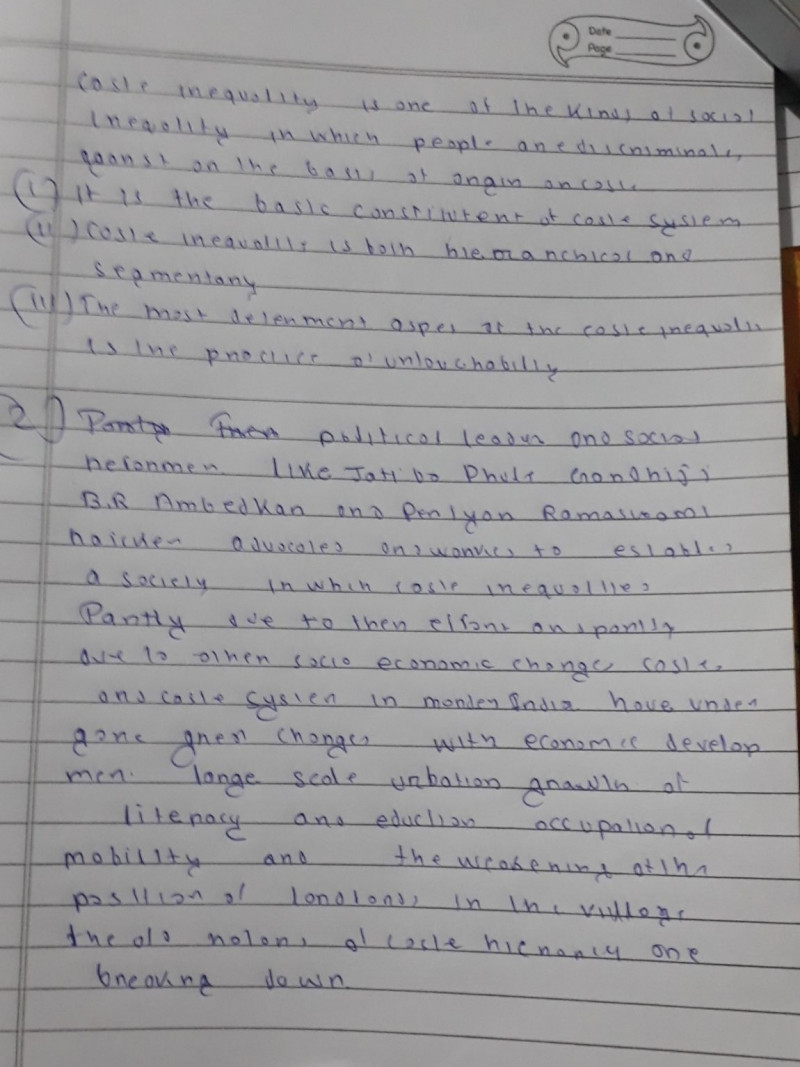 Date
Page
caste inequality is one of the kinds of social
inequality in which people are discriminate
against on the basis of origin or caste
(i) It is the basic constituent of caste system
(ii) caste inequality is both hierarchical and
segmentary
(iii) The most determent aspet of the caste inequality
is the practice of untouchability
2) political leader and social
reformer like Jotiba Phule Gandhiji
B.R Ambedkar and Periyar Ramaswami
naicker advocates and works to establish
a society in which caste inequalities
Partly due to their effort and partly
due to other socio economic changes caste
and caste system in morden India have under
gone great changes with economic develop
men. large scale urbation growth of
literacy and eduction occupational
mobility and the weakening of the
position of landlords in the village
the old notions of caste hierarchy are
breaking down